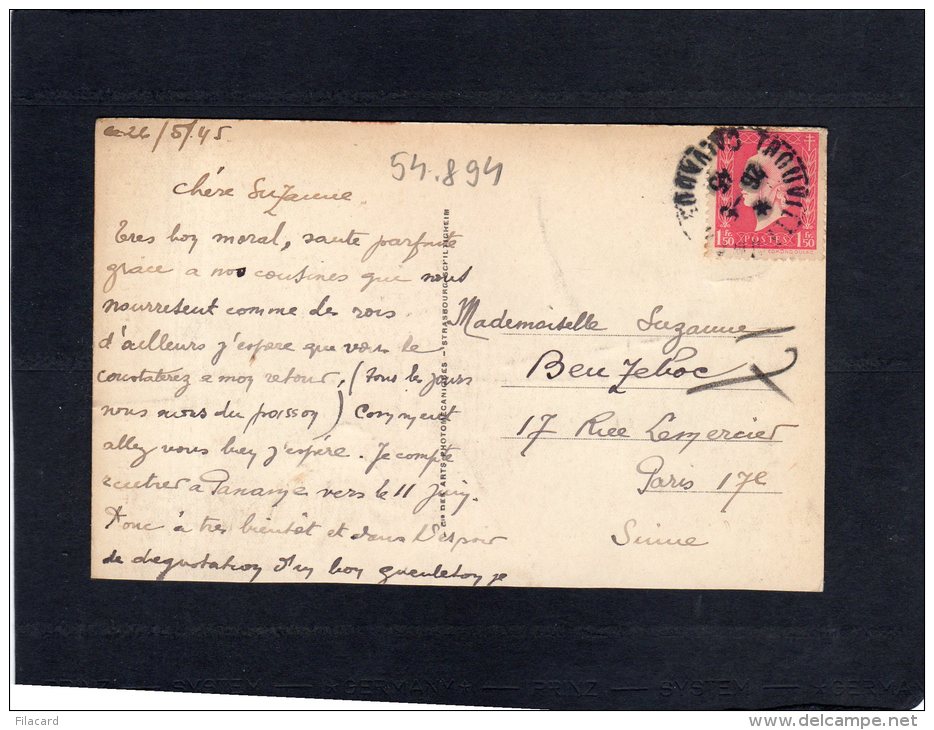 26/5/45
54.894
Chère Suzanne
Tres bon moral, sante parfaite
grace a nos cousines que nous
nourresent comme des rois.
d'ailleurs j'espère que vous le
constaterez a mon retour, (tous les jours
nous avons du poisson) Comment
allez vous bien j'espère. Je compte
rentrer a Paname vers le 11 Juin.
Donc à tres bientôt et dans l'espoir
de degustation d'un bon gueuleton je
Cie DES ARTS PHOTOMECANIQUES - STRASBOURG-SCHILTIGHEIM
TROUVILLE
CALVADOS
26
45
1 Fr. 50
POSTES
1 Fr. 50
Mademoiselle Suzanne
17 Rue Lemercier
Paris 17e
Seine
PRINZ — SYSTEM — GERMANY — PRINZ — SYSTEM — GERMA
Filacard
http://www.delcampe.net